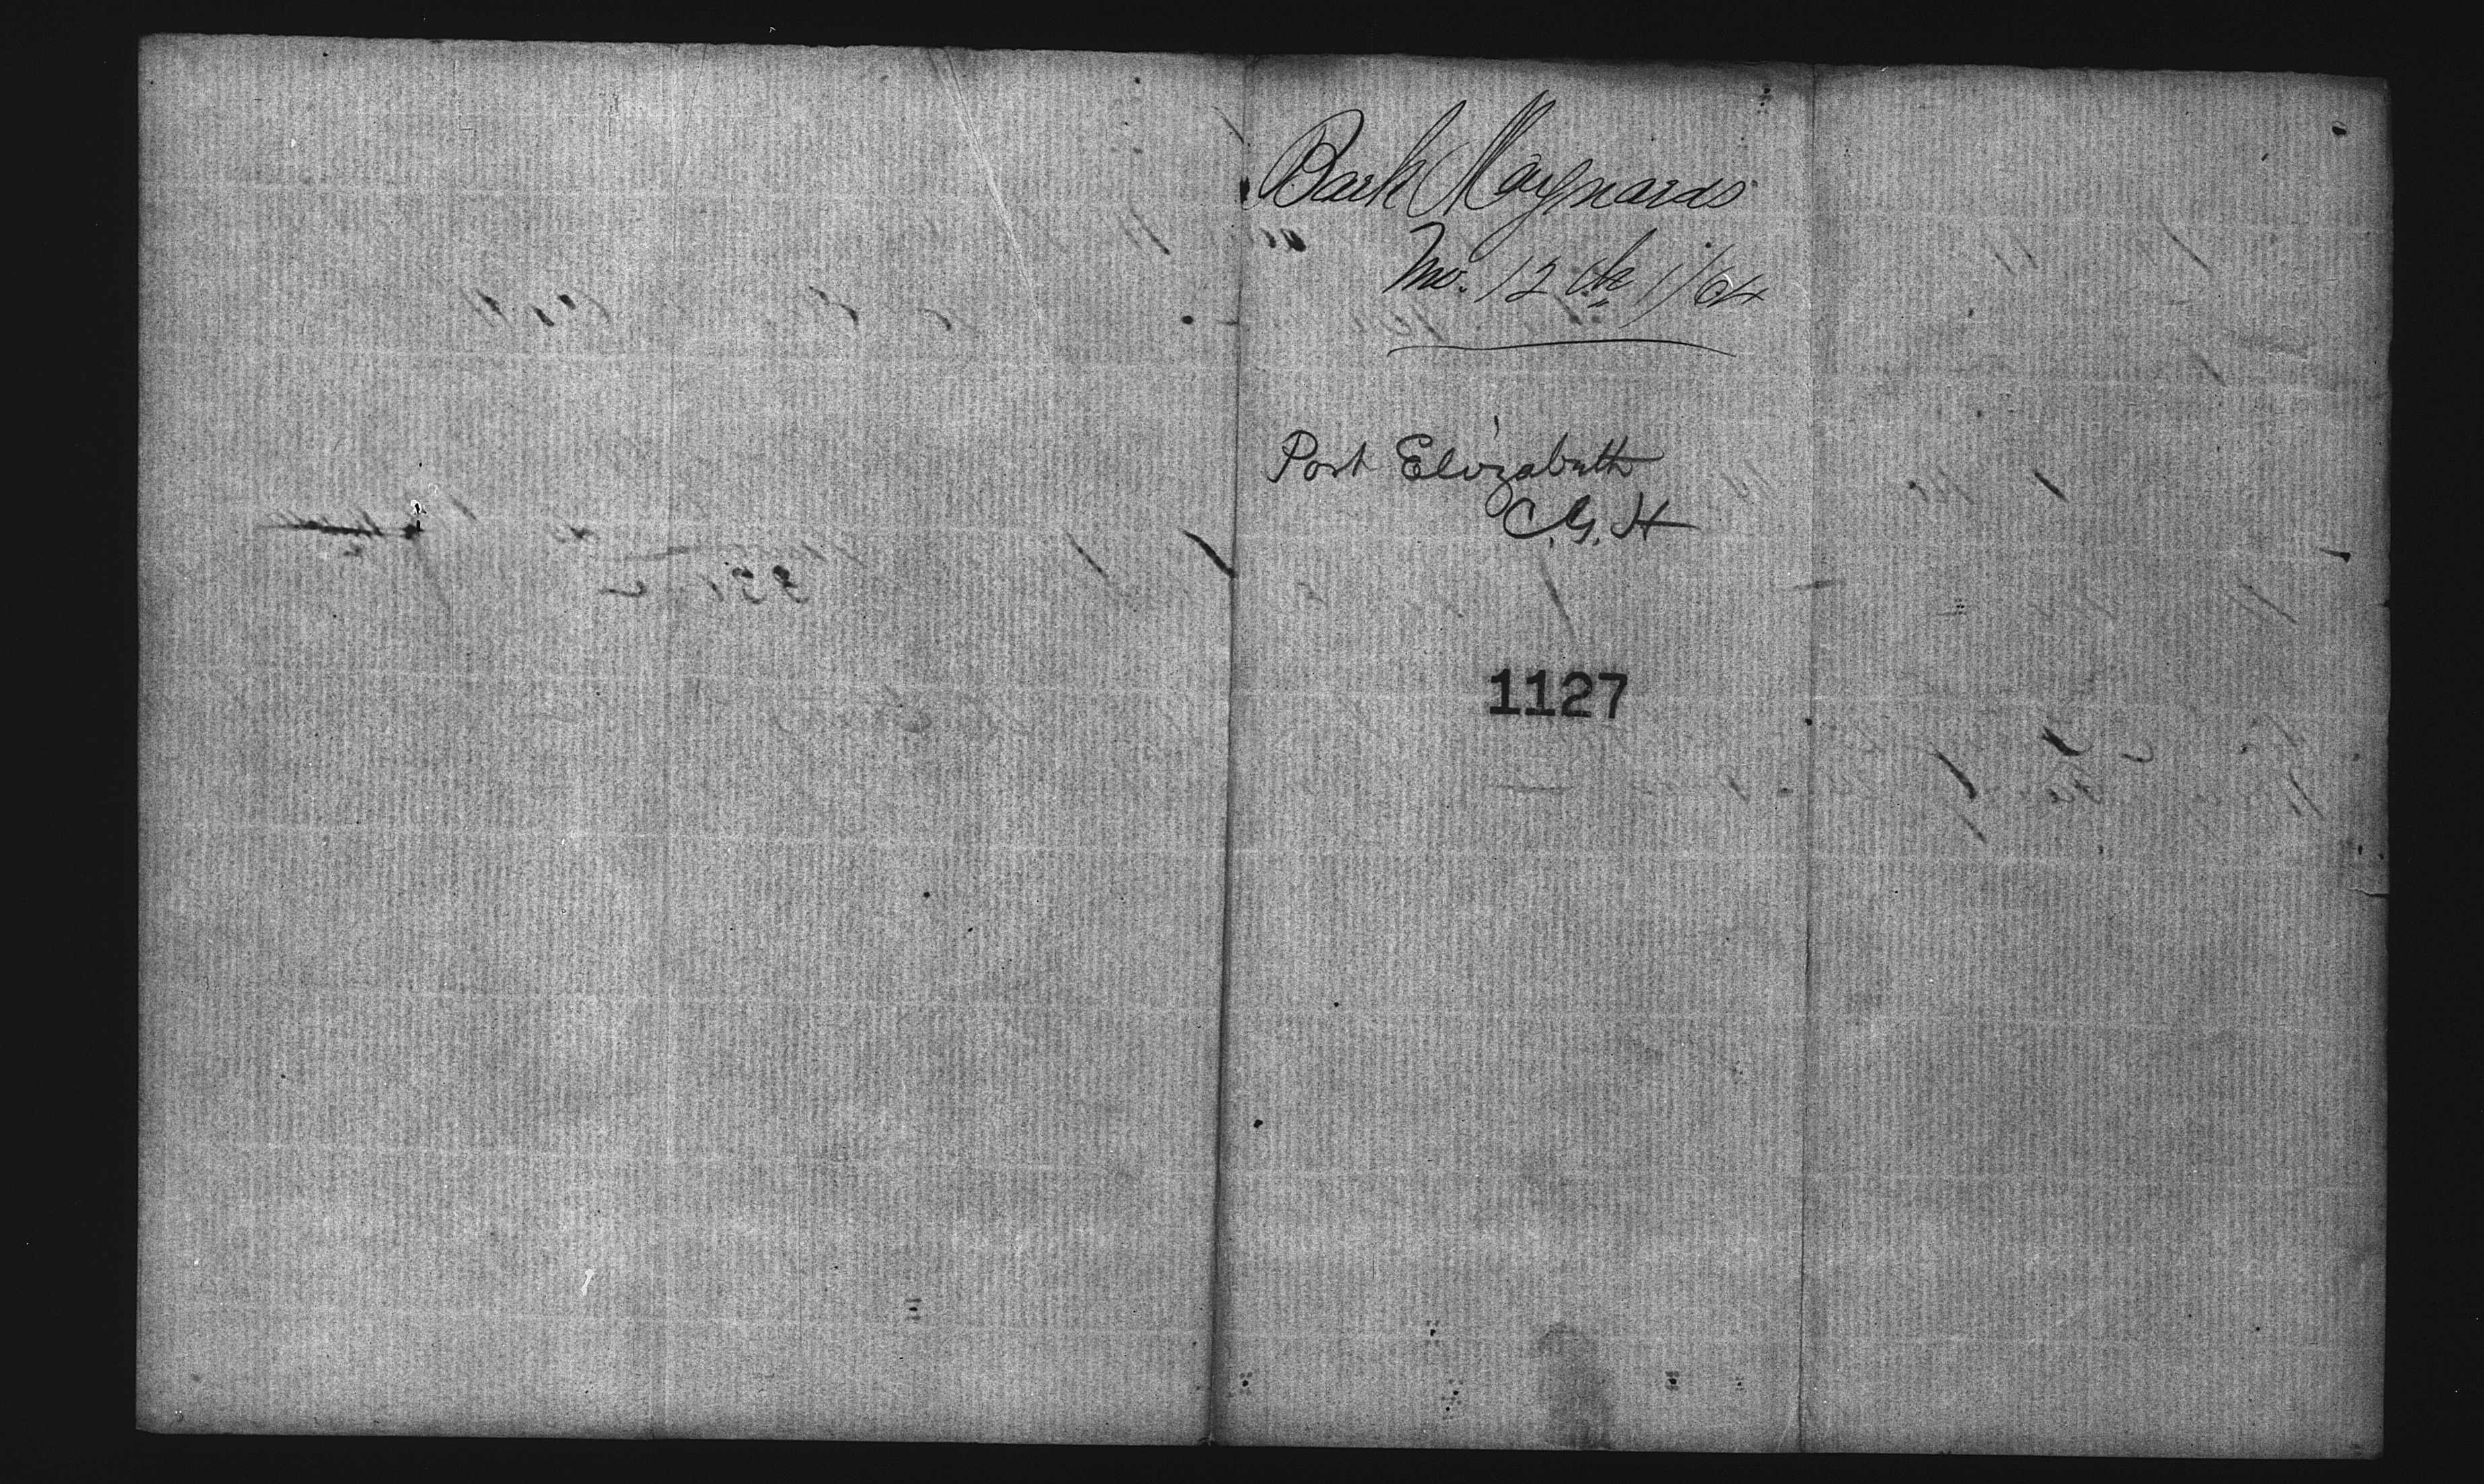 Bark Maynards
Mo. 12
Port Elizabeth
C. G. H
1127